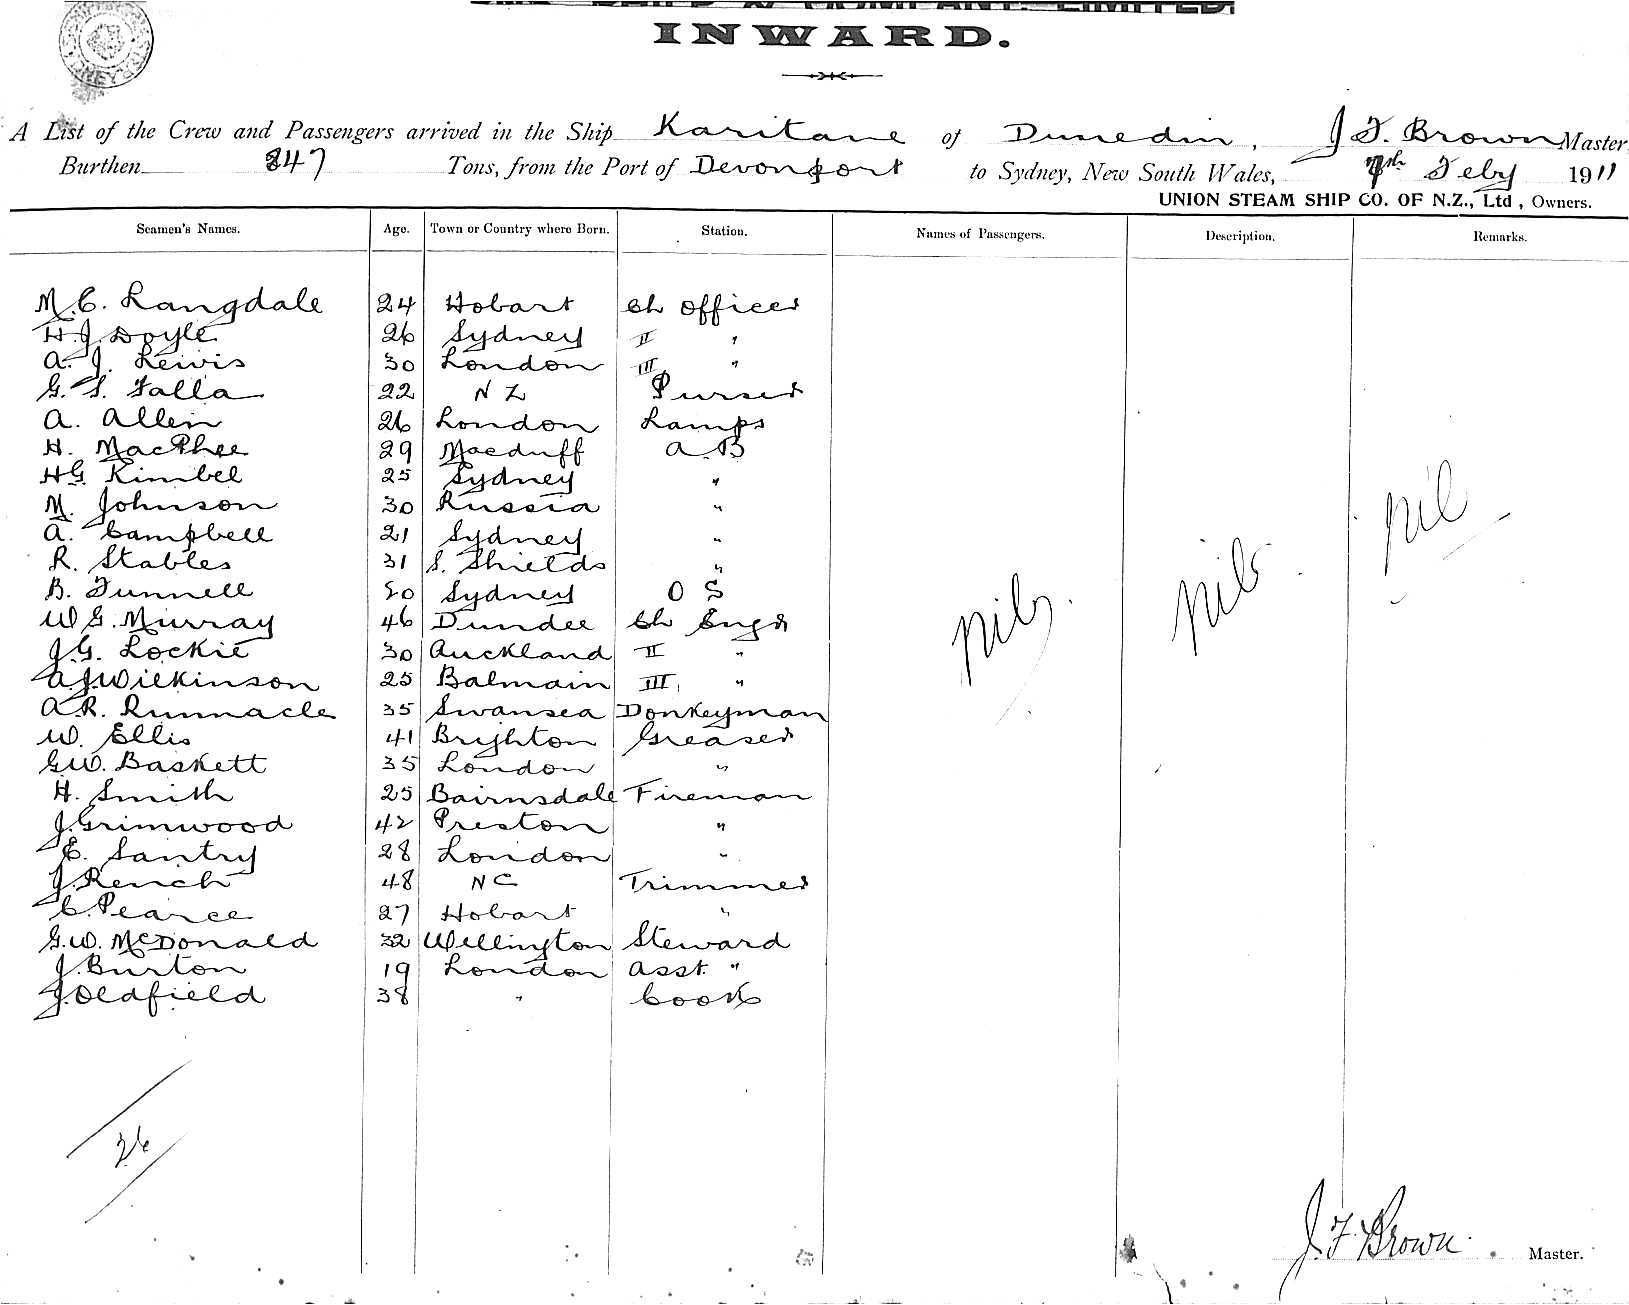 INWARD.
A List of the Crew and Passengers arrived in the Ship Karitane of Dunedin, J F. Brown Master
Burthen 847 Tons, from the Port of Devonport to Sydney, New South Wales, 7th Feby 1911
UNION STEAM SHIP CO. OF N.Z., Ltd, Owners.
Seamen's Names. Age. Town or Country where Born. Station. Names of Passengers. Description. Remarks.
M. C. Langdale 24 Hobart Ch Officer
H. J. Doyle 26 Sydney II "
A. J. Lewis 30 London III "
G. S. Falla 22 N Z Purser
A. Allen 26 London Lamps
H. MacPhee 29 Macduff A. B
HG Kimbel 25 Sydney "
M. Johnson 30 Russia "
A. Campbell 21 Sydney "
R. Stables 31 S. Shields "
B. Funnell 20 Sydney O S
W G. Murray 46 Dundee Ch Engr
J. G. Lockie 30 Auckland II "
A J Wilkinson 25 Balmain III. "
A. R. Runnacle 35 Swansea Donkeyman
W. Ellis 41 Brighton Greaser
G.W. Baskett 35 London "
H. Smith 25 Bairnsdale Fireman
J. Grimwood 42 Preston "
E. Santry 28 London "
J. Rench 48 N C Trimmer
C. Pearce 27 Hobart "
G. W. McDonald 32 Wellington Steward
J. Burton 19 London Asst. "
J. Oldfield 38 " Cook
nil
nil
nil
26
J. F. Brown. Master.